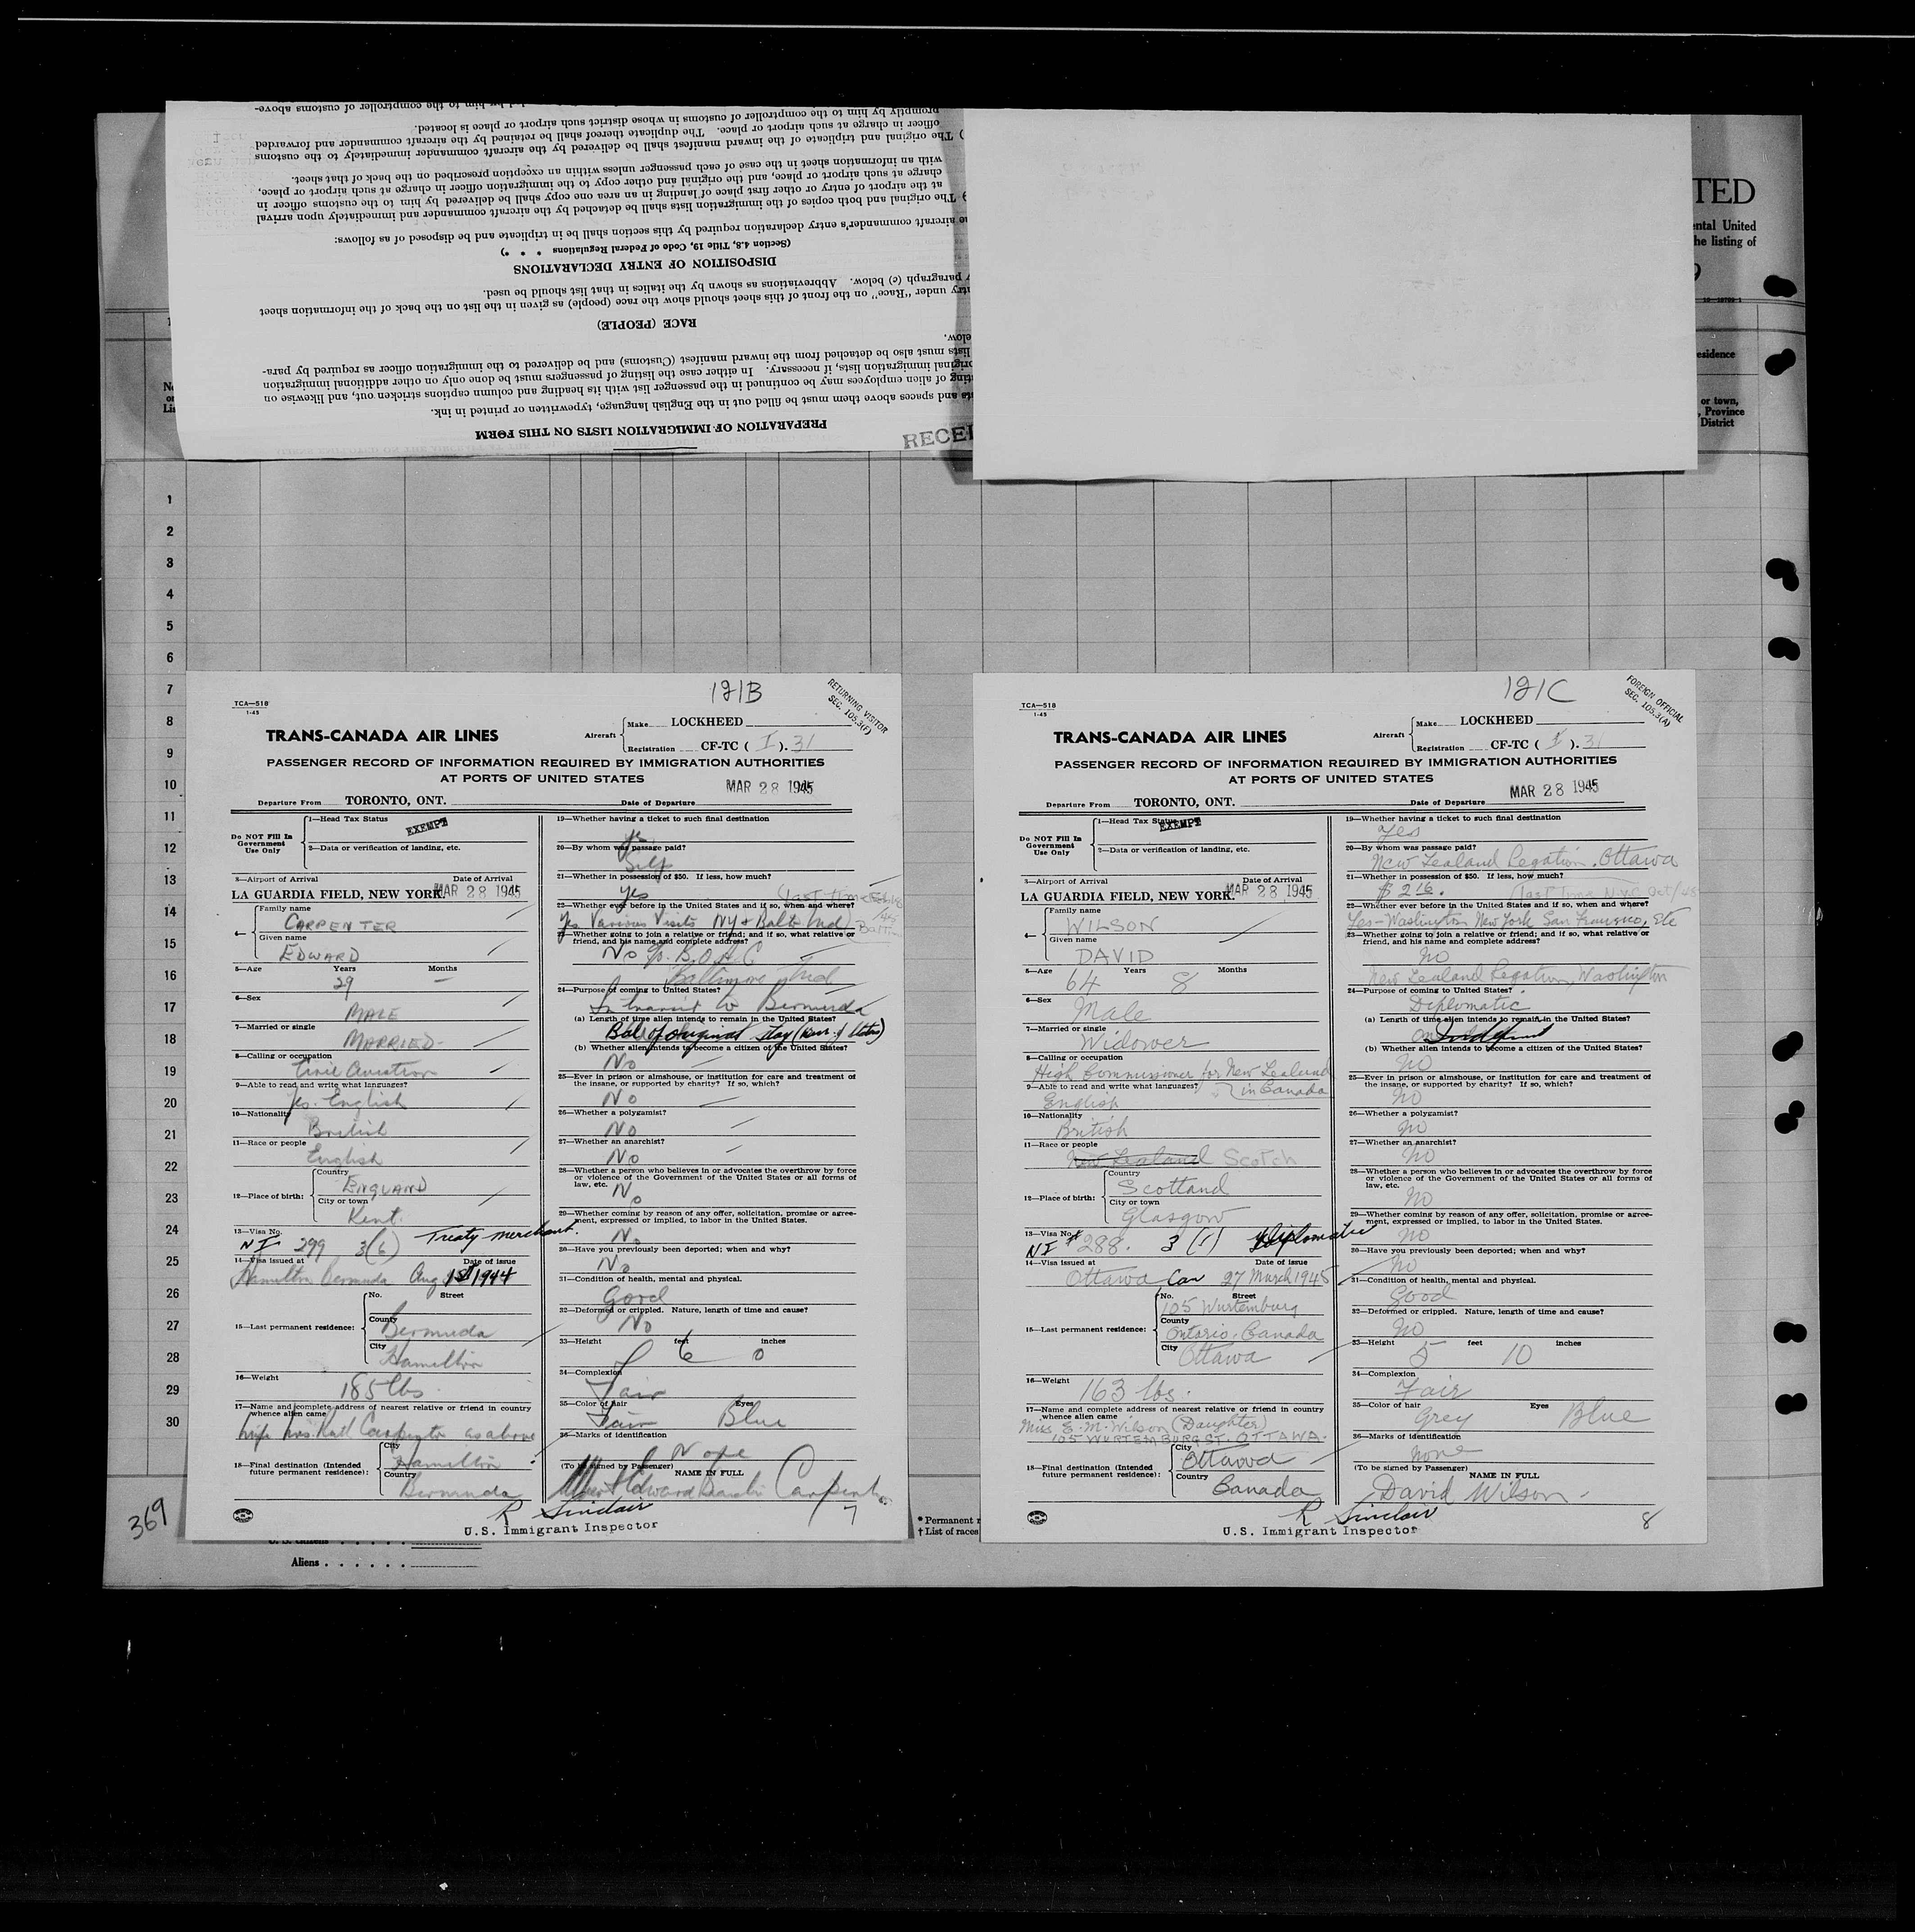 PREPARATION OF IMMIGRATION LISTS ON THIS FORM
and spaces above them must be filled out in the English language, typewritten or printed in ink.
of alien employees may be continued in the passenger list with its heading and column captions stricken out, and likewise on
original immigration lists, if necessary. In either case the listing of passengers must be done only on other additional immigration
lists must also be detached from the inward manifest (Customs) and be delivered to the immigration officer as required by para-
below.
RACE (PEOPLE)
under "Race" on the front of this sheet should show the race (people) as given in the list on the back of the information sheet
paragraph (c) below. Abbreviations as shown by the italics in that list should be used.
DISPOSITION OF ENTRY DECLARATIONS
(Section 4.8, Title 19, Code of Federal Regulations * * *)
aircraft commander's entry declaration required by this section shall be in triplicate and be disposed of as follows:
) The original and both copies of the immigration lists shall be detached by the aircraft commander and immediately upon arrival
at the airport of entry or other first place of landing in an area one copy shall be delivered by him to the customs officer in
charge at such airport or place, and the original and other copy to the immigration officer in charge at such airport or place,
with an information sheet in the case of each passenger unless within an exception prescribed on the back of that sheet.
) The original and triplicate of the inward manifest shall be delivered by the aircraft commander immediately to the customs
officer in charge at such airport or place. The duplicate thereof shall be retained by the aircraft commander and forwarded
promptly by him to the comptroller of customs in whose district such airport or place is located.
by him to the comptroller of customs above-
RECEI
TED
ental United
he listing of
9
esidence
or town,
, Province
District
1
2
3
4
5
6
7
8
9
10
11
12
13
14
15
16
17
18
19
20
21
22
23
24
25
26
27
28
29
30
121B
RETURNING VISITOR
SEC. 105.3(F)
TCA—518
1-45
TRANS-CANADA AIR LINES
Aircraft
Make LOCKHEED
Registration CF-TC ( I ). 31
PASSENGER RECORD OF INFORMATION REQUIRED BY IMMIGRATION AUTHORITIES
AT PORTS OF UNITED STATES
MAR 28 1945
Departure From TORONTO, ONT. Date of Departure
Do NOT Fill In
Government
Use Only
1—Head Tax Status
EXEMPT
2—Data or verification of landing, etc.
3—Airport of Arrival Date of Arrival
LA GUARDIA FIELD, NEW YORK. MAR 28 1945
4— Family name
CARPENTER
Given name
EDWARD
5—Age Years Months
29 —
6—Sex
MALE
7—Married or single
MARRIED
8—Calling or occupation
Civil Aviation
9—Able to read and write what languages?
Yes. English
10—Nationality
British
11—Race or people
English
12—Place of birth:
Country
ENGLAND
City or town
Kent.
13—Visa No.
NI 299 3(6) Treaty merchant.
14—Visa issued at Date of issue
Hamilton Bermuda Aug 1st 1944
15—Last permanent residence:
No. Street
County
Bermuda
City
Hamilton
16—Weight
185 lbs.
17—Name and complete address of nearest relative or friend in country
whence alien came
Wife Mrs. Carpenter as above
18—Final destination (Intended
future permanent residence):
City
Hamilton
Country
Bermuda
19—Whether having a ticket to such final destination
Yes
20—By whom was passage paid?
Self
21—Whether in possession of $50. If less, how much?
Yes
22—Whether ever before in the United States and if so, when and where?
Yes Various Visits NY & Balto Md
23—Whether going to join a relative or friend; and if so, what relative or
friend, and his name and complete address?
No % B.O.A.C
Baltimore Md
24—Purpose of coming to United States?
In transit to Bermuda
(a) Length of time alien intends to remain in the United States?
Bal of original stay
(b) Whether alien intends to become a citizen of the United States?
No
25—Ever in prison or almshouse, or institution for care and treatment of
the insane, or supported by charity? If so, which?
No
26—Whether a polygamist?
No
27—Whether an anarchist?
No
28—Whether a person who believes in or advocates the overthrow by force
or violence of the Government of the United States or all forms of
law, etc.
No
29—Whether coming by reason of any offer, solicitation, promise or agree-
ment, expressed or implied, to labor in the United States.
No
30—Have you previously been deported; when and why?
No
31—Condition of health, mental and physical.
Good
32—Deformed or crippled. Nature, length of time and cause?
No
33—Height feet inches
6 0
34—Complexion
Fair
35—Color of hair Eyes
Fair Blue
36—Marks of identification
None
(To be signed by Passenger) NAME IN FULL
Edward Carpenter
7
R Sinclair
U.S. Immigrant Inspector
121C
FOREIGN OFFICIAL
SEC. 105.3(A)
TCA—518
1-45
TRANS-CANADA AIR LINES
Aircraft
Make LOCKHEED
Registration CF-TC ( I ). 31
PASSENGER RECORD OF INFORMATION REQUIRED BY IMMIGRATION AUTHORITIES
AT PORTS OF UNITED STATES
MAR 28 1945
Departure From TORONTO, ONT. Date of Departure
Do NOT Fill In
Government
Use Only
1—Head Tax Status
EXEMPT
2—Data or verification of landing, etc.
3—Airport of Arrival Date of Arrival
LA GUARDIA FIELD, NEW YORK. MAR 28 1945
4— Family name
WILSON
Given name
DAVID
5—Age Years Months
64 8
6—Sex
Male
7—Married or single
Widower
8—Calling or occupation
High Commissioner for New Zealand
in Canada
9—Able to read and write what languages?
English
10—Nationality
British
11—Race or people
New Zealand Scotch
12—Place of birth:
Country
Scotland
City or town
Glasgow
13—Visa No.
NI # 288. 3 (1) Diplomatic
14—Visa issued at Date of issue
Ottawa Can 27 March 1945
15—Last permanent residence:
No. Street
105 Wurtemburg
County
Ontario, Canada
City
Ottawa
16—Weight
163 lbs.
17—Name and complete address of nearest relative or friend in country
whence alien came
Miss E. M. Wilson (Daughter)
105 WURTEMBURG ST. OTTAWA.
18—Final destination (Intended
future permanent residence):
City
Ottawa
Country
Canada
19—Whether having a ticket to such final destination
Yes
20—By whom was passage paid?
New Zealand Legation, Ottawa
21—Whether in possession of $50. If less, how much?
$216. (last time N.Y.C. Oct/
22—Whether ever before in the United States and if so, when and where?
Yes—Washington New York San Francisco, Etc
23—Whether going to join a relative or friend; and if so, what relative or
friend, and his name and complete address?
No
New Zealand Legation, Washington
24—Purpose of coming to United States?
Diplomatic
(a) Length of time alien intends to remain in the United States?
(b) Whether alien intends to become a citizen of the United States?
No
25—Ever in prison or almshouse, or institution for care and treatment of
the insane, or supported by charity? If so, which?
No
26—Whether a polygamist?
No
27—Whether an anarchist?
No
28—Whether a person who believes in or advocates the overthrow by force
or violence of the Government of the United States or all forms of
law, etc.
No
29—Whether coming by reason of any offer, solicitation, promise or agree-
ment, expressed or implied, to labor in the United States.
No
30—Have you previously been deported; when and why?
No
31—Condition of health, mental and physical.
Good
32—Deformed or crippled. Nature, length of time and cause?
No
33—Height feet inches
5 10
34—Complexion
Fair
35—Color of hair Eyes
Grey Blue
36—Marks of identification
None
(To be signed by Passenger) NAME IN FULL
David Wilson
R Sinclair
U.S. Immigrant Inspector
8
369
* Permanent r
† List of races
Aliens . . . . . .